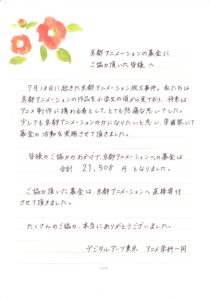 京都アニメーションの基金に
ご協力頂いた皆様へ
7月18日に起きた京都アニメーション放火事件。私たちは
京都アニメーションの作品を小学生の頃から見ており、将来は
アニメ制作に携わる者として、とても悲痛な思いでした。
少しでも京都アニメーションの力になりたいと思い、学園祭にて
募金の活動を実施させて頂きました。
皆様のご協力のおかげで、京都アニメーションへの基金は
合計 21,508 円となりました。
ご協力頂いた基金は、京都アニメーションへ直接寄付
させて頂きました。
たくさんのご協力、本当にありがとうございました。
デジタルアーツ東京 アニメ学科一同